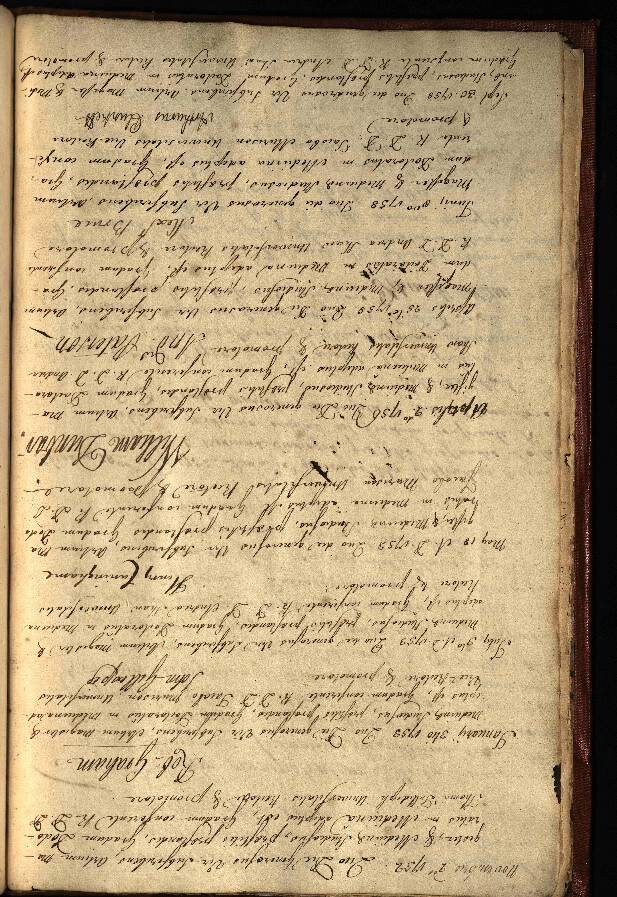 Novembris 2do 1752. Quo Die Generosus Vir Subscribens Artium Ma-
gister, & Medicinæ Studiosus, præstitis præstandis, Gradum Docto-
ratus in Medicina adeptus est. Gradum conferente R. D. D.
Thoma Tullidelph Universitatis Rectore & promotore.
Rob. Graham
January 3tio 1753 Quo Die generosus Vir Subscribens Artium Magister &
Medicinæ Studiosus, præstitis præstandis, gradum Doctoratus in Medicina ad-
eptus est, gradum conferente R. D. D. Jacobo Murison, Universitatis
Vice-Rectore & promotore
John Gillespy
1753 Quo die generosus Vir Subscribens, Artium Magister &
Medicinæ Studiosus, præstitis præstandis, Gradum Doctoratus in Medicina
adeptus est, Gradum conferente R. D. D. Andrea Shaw, Universitatis
Rectore & promotore.
Henry Cuninghame
May A. D. 1753 Quo die generosus Vir Subscribens, Artium Ma-
gister, & Medicinæ Studiosus, præstitis præstandis Gradum Docto-
ratus in Medicina adeptus est, Gradum conferente R. D. D.
Jacobo Murison Universitatis Rectore & promotore.
William Dunbar
Aprilis 2do Quo Die generosus Vir Subscribens, Artium Ma-
gister, & Medicinæ Studiosus, præstitis præstandis, Gradum Doctora-
tus in Medicina adeptus est, Gradum conferente R. D. D. Andrea
Shaw Universitatis Rectore & promotore
Paterson
Aprilis 25to 1758 Quo Die generosus Vir Subscribens, Artium
Magister & Medicinæ Studiosus, præstitis præstandis, Gra-
dum Doctoratus in Medicina adeptus est, Gradum conferente
R. D. D. Andrea Shaw Universitatis Rectore & promotore
Alexr Bruce
Junij 8vo 1758 Quo die generosus Vir Subscribens, Artium
Magister & Medicinæ Studiosus, præstitis præstandis, Gra-
dum Doctoratus in Medicina adeptus est, Gradum confe-
rente R. D. D. Jacobo Murison Universitatis Vice-Rectore
& promotore
Arthurus Plunkett
Sept 30 1758 Quo die generosus Vir Subscribens Artium Magister & Med-
Studiosus, præstitis præstandis, Gradum Doctoratus in Medicina adeptus est,
Gradum conferente R. D. D. Andrea Shaw Universitatis Rectore & promotore